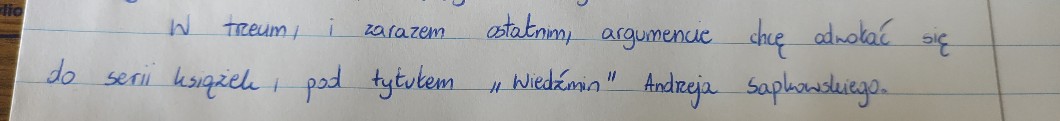 W trzecim, i zarazem ostatnim, argumencie chcę odwołać się
do serii książek, pod tytułem „Wiedźmin" Andrzeja Sapkowskiego.